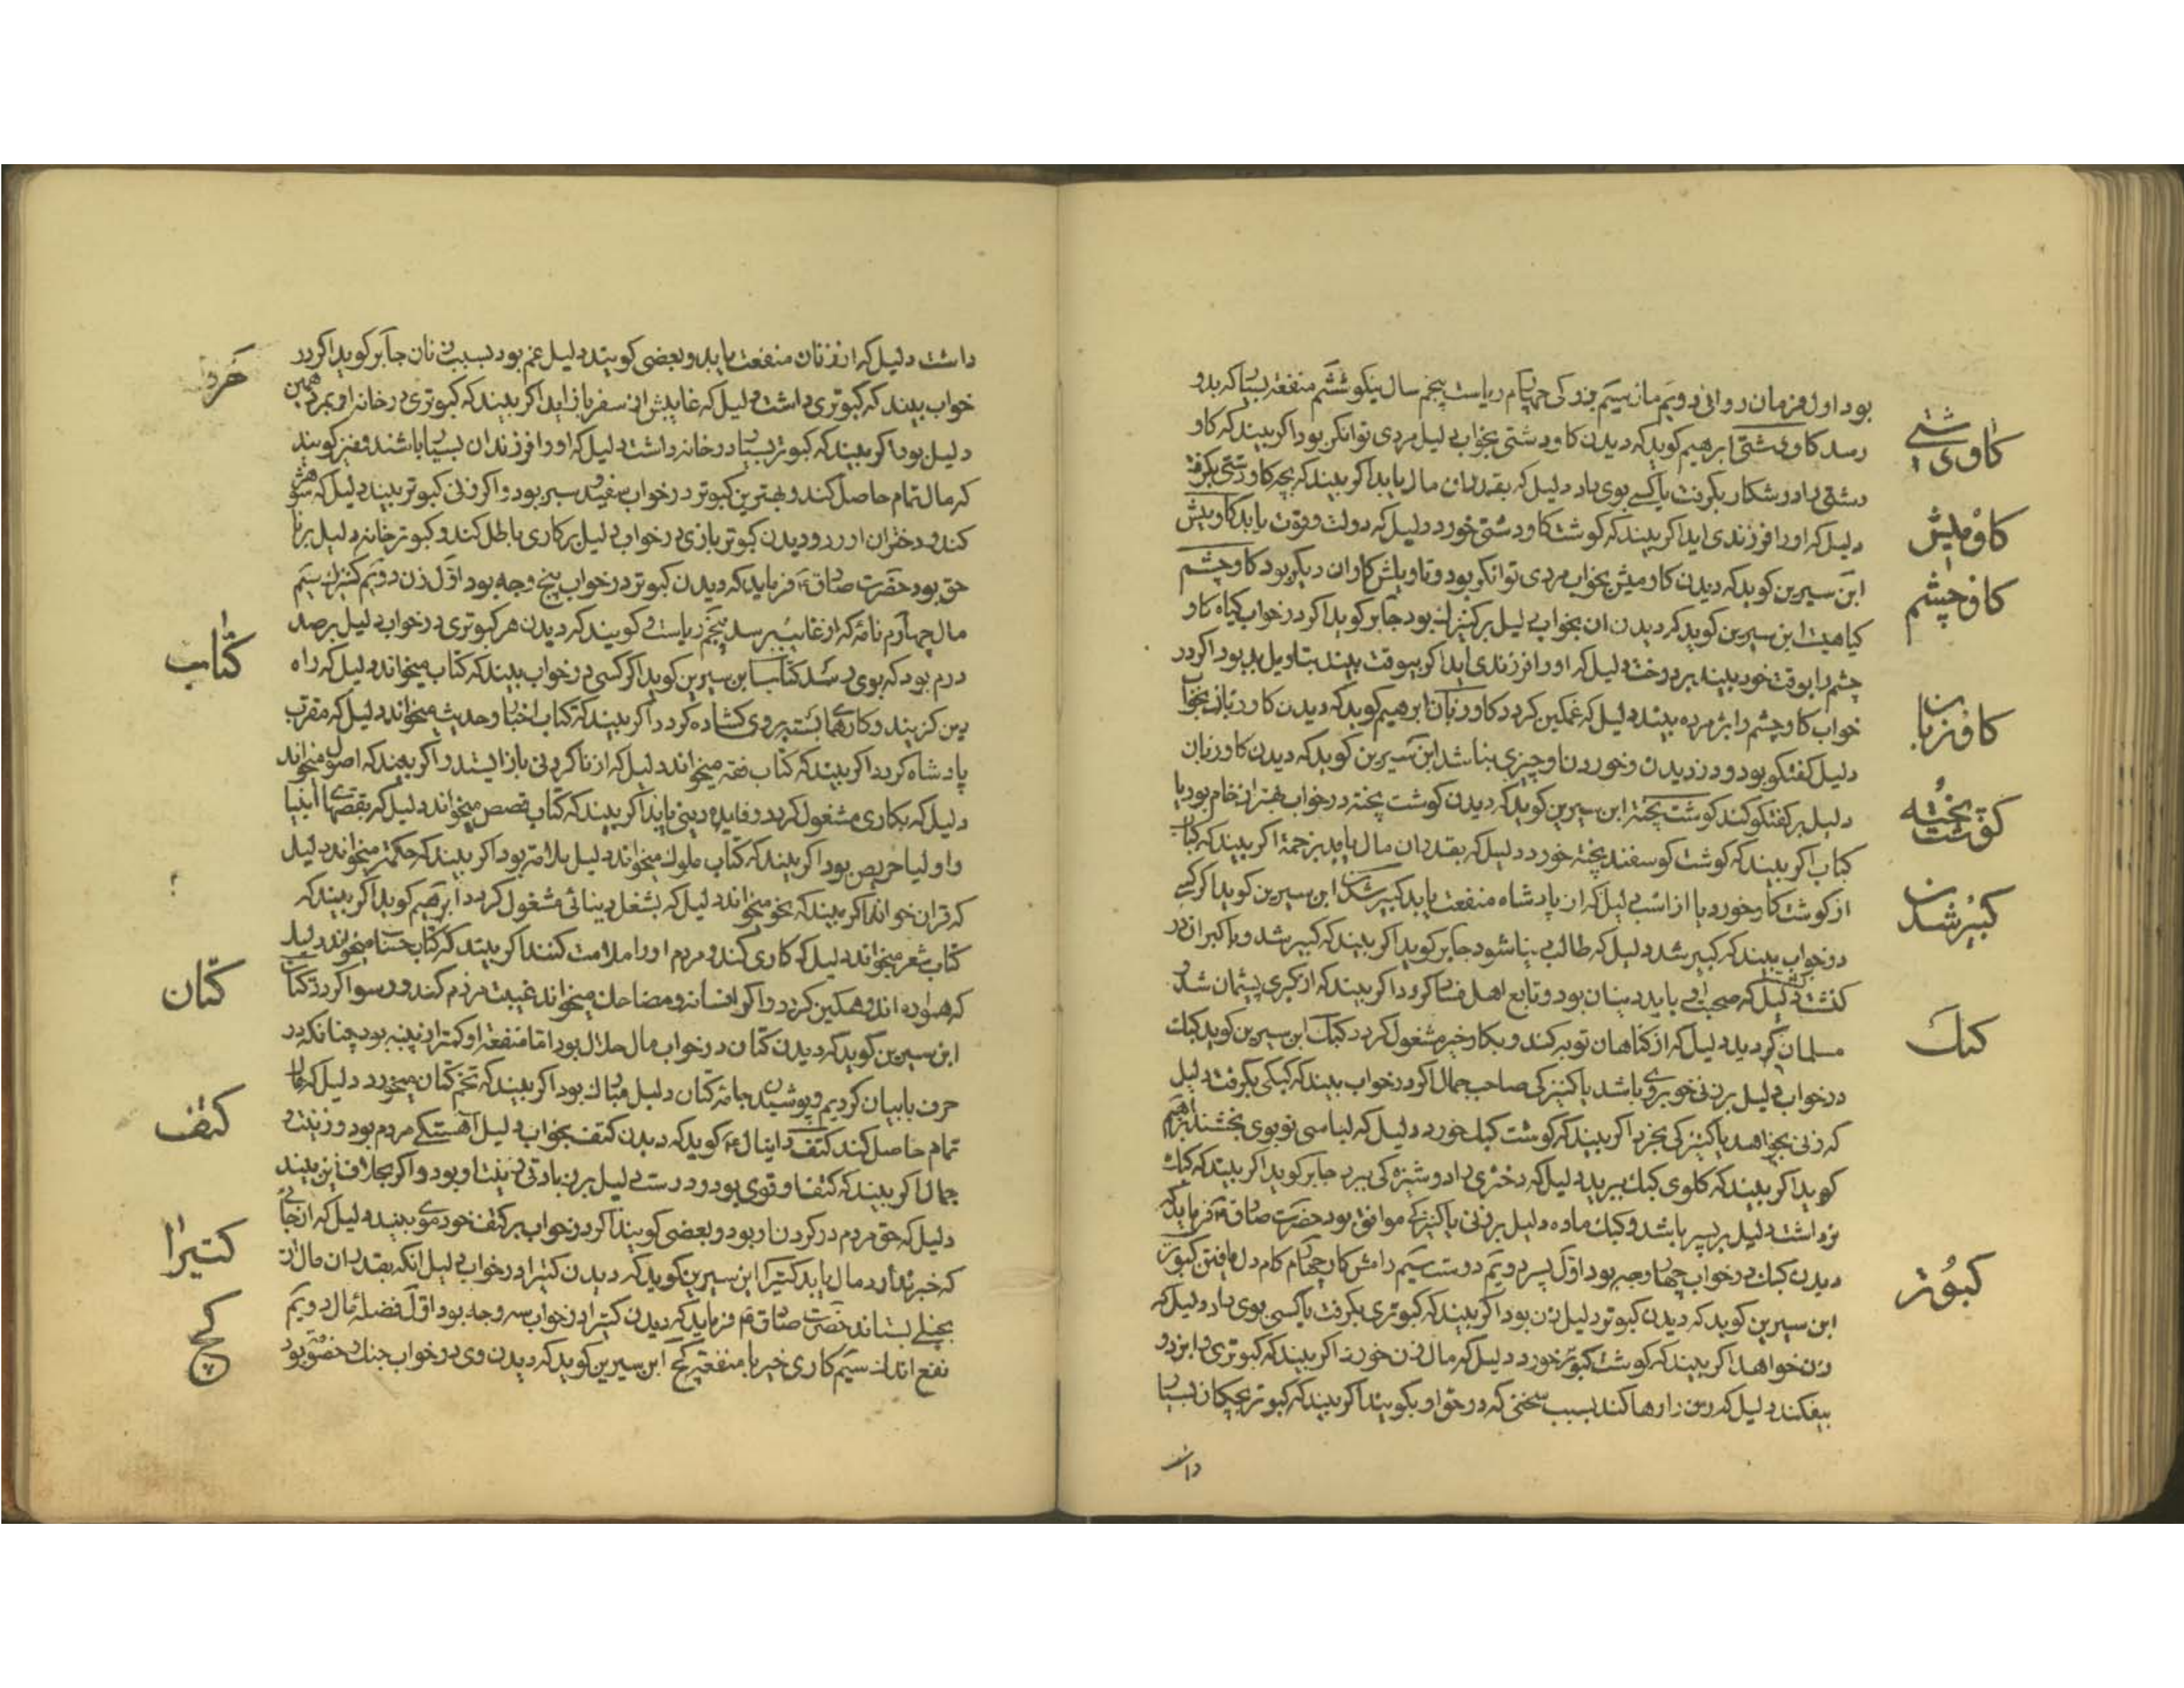 بود اول فرمان روانی دویم مان سیم بزرکی چهارم ریاست پنجم سال نیکو ششم منفعة بسیار که بدو
کاو دشتی
رسد کاو دشتی ابرهیم کوید که دیدن کاو دشتی بخواب دلیل مردی توانکر بود اکر بیند که کاو
دشتی را در شکار بکرفت یا کسے بوی داد دلیل که بقدر ان مال یابد اکر بیند که بچه کاو دشتی بکرفت
دلیل که او را فرزندی اید اکر بیند که کوشت کاو دشتی خورد دلیل که دولت و قوت یابد کاومیش
کاومیش
ابن سیرین کوید که دیدن کاومیش بخواب مردی توانکر بود و تاویلش کاوان دیکر بود کاوچشم
کاوچشم
کیاهیت ابن سیرین کوید که دیدن ان بخواب دلیل بر کنیزك بود جابر کوید اکر در خواب کیاه کاو
چشم را بوقت خود بیند بر درخت دلیل که او را فرزندی اید اکر بیوقت بیند بتاویل بد بود اکر در
خواب کاوچشم را پژمرده بیند دلیل که غمکین کردد کاو زبان ابرهیم کوید که دیدن کاو زبان بخواب
کاوزبان
دلیل کفتکو بود و در زدیدن و خوردن او چیزی نباشد ابن سیرین کوید که دیدن کاو زبان
دلیل بر کفتکو کند کوشت پخته ابن سیرین کوید که دیدن کوشت پخته در خواب بهتر از خام بود یا
کوشت پخته
کباب اکر بیند که کوشت کوسفند پخته خورد دلیل که بقدر ان مال یابد بزحمة اکر بیند که کباب
از کوشت کاو خورد یا از اسب دلیل که از پادشاه منفعت یابد کبیر شدن ابن سیرین کوید اکر کسے
کبیر شدن
در خواب بیند که کبیر شد دلیل که طالب دنیا شود جابر کوید اکر بیند که کبیر شد و با کبران در
کذشت دلیل که صحبت او با بددینان بود و تابع اهل فساد کردد اکر بیند که از کبری پشیمان شد و
مسلمان کردید دلیل که از کناهان توبه کند و بکار خیر مشغول کردد کبك ابن سیرین کوید کبك
کبك
در خواب دلیل بر زنی خوبروی باشد یا کنیزکی صاحب جمال اکر در خواب بیند که کبکی بکرفت دلیل
که زنی بخواهد یا کنیزکی بخرد اکر بیند که کوشت کبك خورد دلیل که لباسی نو بوی بخشند ابرهیم
کوید اکر بیند که کلوی کبك ببرید دلیل که دختری را دوشیزه کی ببرد جابر کوید اکر بیند که کبك
نر داشت دلیل بر پسر باشد و کبك ماده دلیل بر زنی یا کنیزکے موافق بود حضرت صادق فرماید که
دیدن کبك در خواب چهار وجه بود اول پسر دویم دوست سیم رامش کار چهارم کام دل یافتن کبوتر
کبوتر
ابن سیرین کوید که دیدن کبوتر دلیل زن بود اکر بیند که کبوتری بکرفت یا کسی بوی داد دلیل که
زن خواهد اکر بیند که کوشت کبوتر خورد دلیل که مال زن خورد اکر بیند که کبوتری را بزد و
بیفکند دلیل که زن را رها کند بسبب سخنی که در حق او بکویند اکر بیند که کبوتر بچکان بسیار
داشت
داشت دلیل که از زنان منفعت یابد و بعضی کویند دلیل غم بود بسبب زنان جابر کوید اکر در
خواب بیند که کبوتری داشت دلیل که غایبش از سفر باز اید اکر بیند که کبوتری در خانه او بمرد همین
دلیل بود اکر بیند که کبوتر بسیار در خانه داشت دلیل که او را فرزندان بسیار باشند و نیز کویند
که مال تمام حاصل کند و بهترین کبوتر در خواب سفید و سبز بود و اکر زنی کبوتر بیند دلیل که شوهرش
کند و دختران اورد و دیدن کبوتربازی در خواب دلیل بر کاری باطل کند و کبوترخانه دلیل بر نا
حق بود حضرت صادق فرماید که دیدن کبوتر در خواب پنج وجه بود اول زن دویم کنیزك سیم
مال چهارم نامه که از غایب برسد پنجم ریاست و کویند که دیدن هر کبوتری در خواب دلیل بر صد
درم بود که بوی رسد کتاب ابن سیرین کوید اکر کسی در خواب بیند که کتاب میخواند دلیل که راه
کتاب
دین کزیند و کارهای بسته بر وی کشاده کردد اکر بیند که کتاب اخبار و حدیث میخواند دلیل که مقرب
پادشاه کردد اکر بیند که کتاب فقه میخواند دلیل که از ناکردنی باز ایستد و اکر بیند که اصول میخواند
دلیل که بکاری مشغول کردد و فایده دینی یابد اکر بیند که کتاب قصص میخواند دلیل که بقصهای انبیا
و اولیا حریص بود اکر بیند که کتاب ملوك میخواند دلیل بلامة بود اکر بیند که حکمة میخواند دلیل
که قران خواند اکر بیند که نحو میخواند دلیل که بشغل دینائی مشغول کردد ابرهیم کوید اکر بیند که
کتاب شعر میخواند دلیل که کاری کند و مردم او را ملامت کنند اکر بیند که کتاب حساب میخواند دلیل
که همواره اندوهکین کردد و اکر افسانه و مضاحك میخواند غیبت مردم کند و رسوا کردد کتان
کتان
ابن سیرین کوید که دیدن کتان در خواب مال حلال بود اما منفعة او کمتر از پنبه بود چنانکه در
حرف با بیان کردیم و پوشیدن جامه کتان دلیل مبارك بود اکر بیند که تخم کتان میخورد دلیل که مال
تمام حاصل کند کتف دانیال کوید که دیدن کتف بخواب دلیل اهستکے مردم بود و زینت و
کتف
جمال اکر بیند که کتف او قوی بود و درست دلیل بر زیادتی زینت او بود و اکر بخلاف این بیند
دلیل که حق مردم در کردن او بود و بعضی کویند اکر در خواب بر کتف خود موی بیند دلیل که از جائے
که خبر ندارد مال یابد کتیرا ابن سیرین کوید که دیدن کتیرا در خواب دلیل انکه بقدر ان مال از
کتیرا
بخیلے بستاند حضرت صادق فرماید که دیدن کتیرا در خواب سه وجه بود اول فضله مال دویم
نفع اندك سیم کاری خیر با منفعة کج ابن سیرین کوید که دیدن وی در خواب جنك و خصومت بود
کج